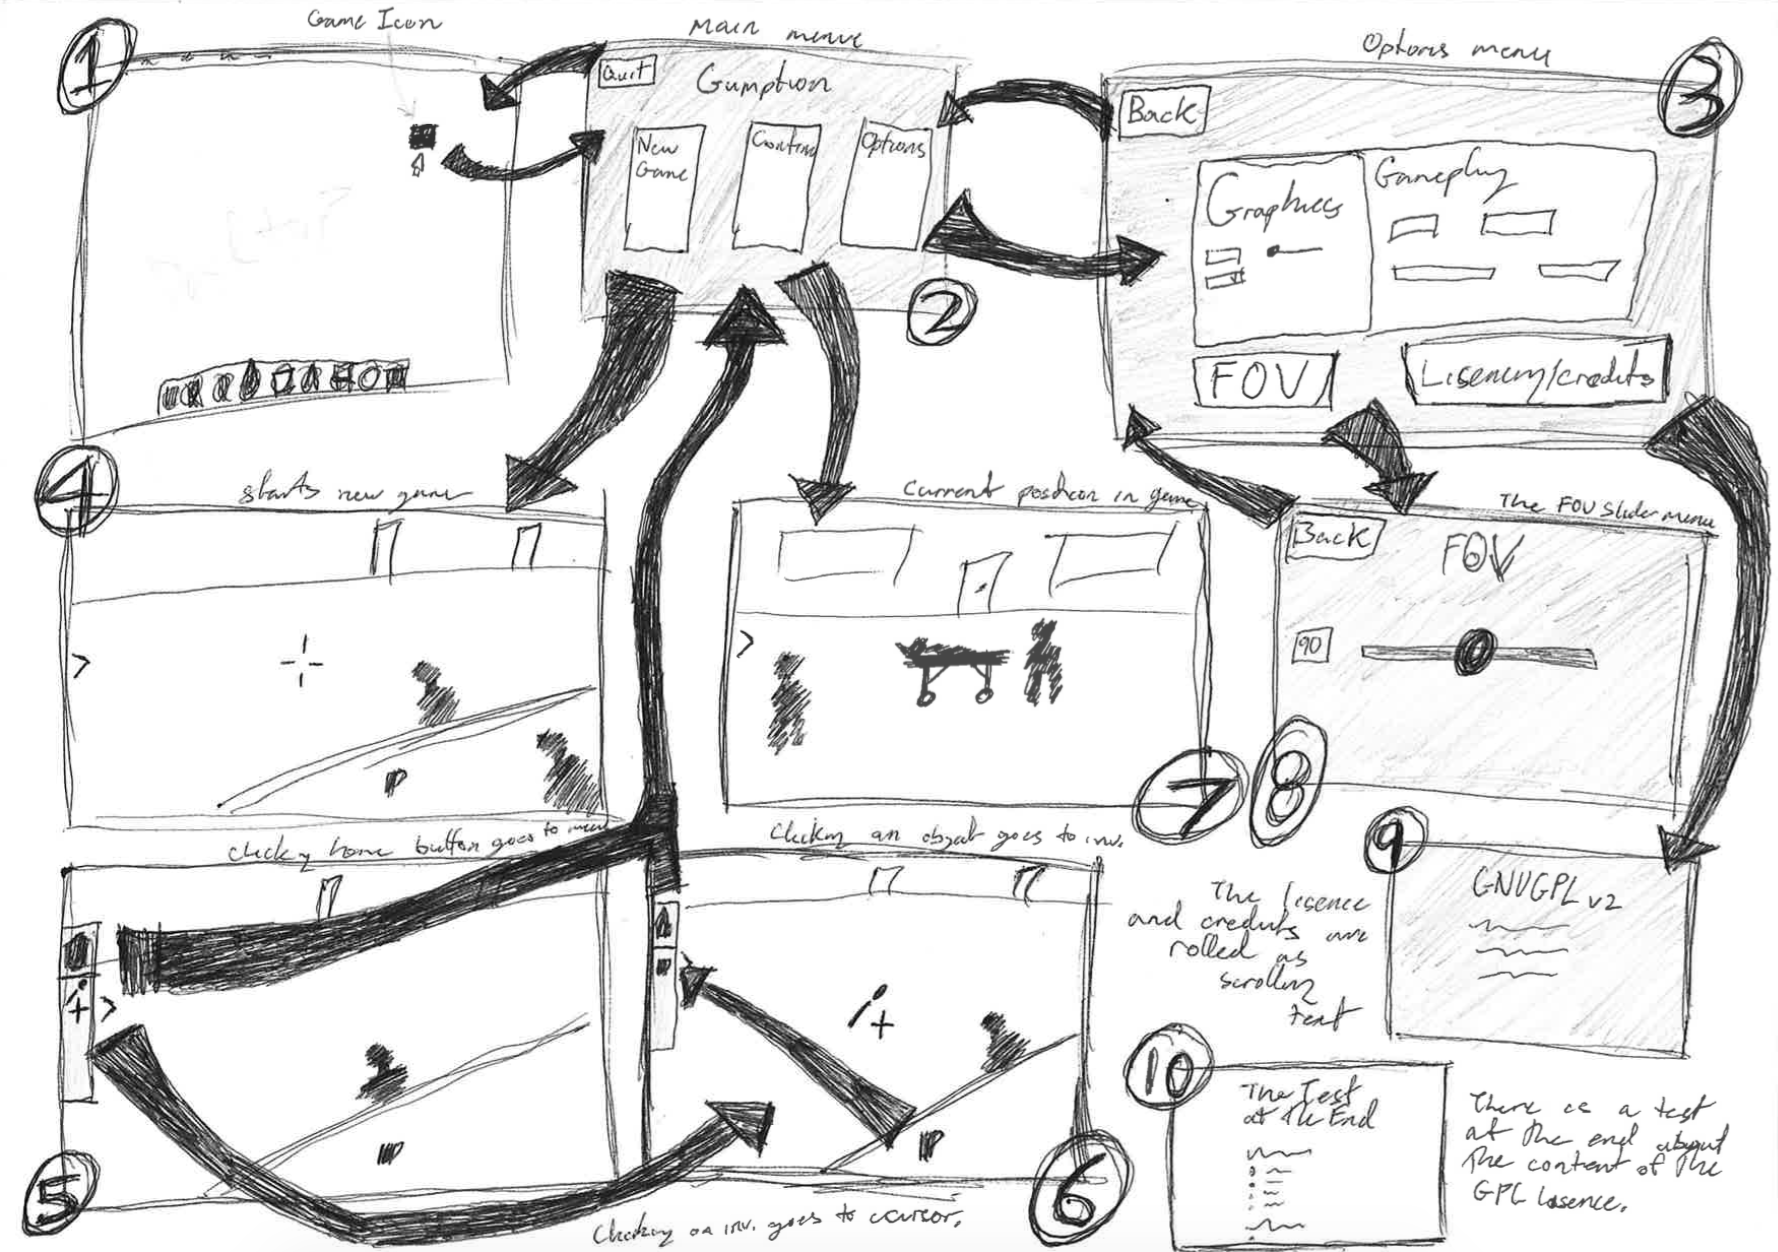 1
Game Icon
Main menue
Quit
Gumption
New
Game
Contenu
Options
2
Options menu
3
Back
Graphiccs
Gameplay
FOV
Lisencing/credits
4
starts new game
Current position in game
7
The FOV slider menu
Back
FOV
90
8
clicking home button goes to menu
5
Clicking an object goes to inv.
6
Clicking on inv. goes to cursor.
9
GNUGPL v2
The lisence
and credits are
rolled as
scrolling
text
10
The Test
at the End
There is a test
at the end about
the content of the
GPL lisence.